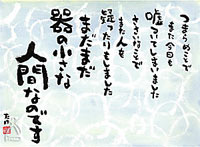 つまらぬことで
また今日も
嘘ついてしまいました
ささいなことで
また人を
疑ったりもしました
まだまだ
器の小さな
人間なのです